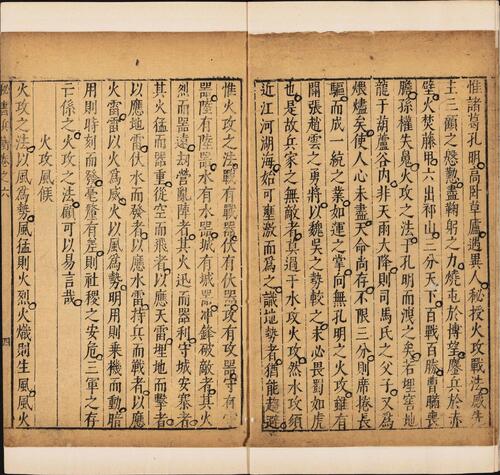 惟諸葛孔明高卧草廬遇異人秘授火攻戰法感先
主三顧之慇懃盡鞠躬之力燒屯於博望鏖兵於赤
壁火焚藤甲六出祁山三分天下百戰百勝曹瞞喪
膽孫權失魂火攻之法于孔明而洩之矣若埋窖地
龍于葫蘆谷內非天雨大降則司馬氏之父子又爲
煨燼矣使人心未盡天命尚存不限三分則席捲長
驅而成一統之業如運之掌向無孔明之火攻雖有
關張趙雲之勇將以魏吳之勢較之未必畏蜀如虎
也是故兵家之無敵者莫過于水攻火攻然水攻須
近江河湖海始可壅激而爲之識地勢者猶能趨避
惟火攻之法戰有戰器伏有伏器攻有攻器守有守
器陸有陸器水有水器城有城器衝鋒破敵者其火
烈而器遠劫營亂陣者其火迅而器利守城安寨者
其火猛而器重從空而飛者以應天雷埋地而擊者
以應地雷伏水而發者以應水雷持兵而戰者以應
火雷雷以火爲威火以風爲勢明用則乘機而動暗
用則時刻而發毫釐有差則社稷之安危三軍之存
亡係之火攻之法顧可以易言哉
火攻風候
火攻之法以風爲勢風猛則火烈火熾則生風風火
卷之六
四